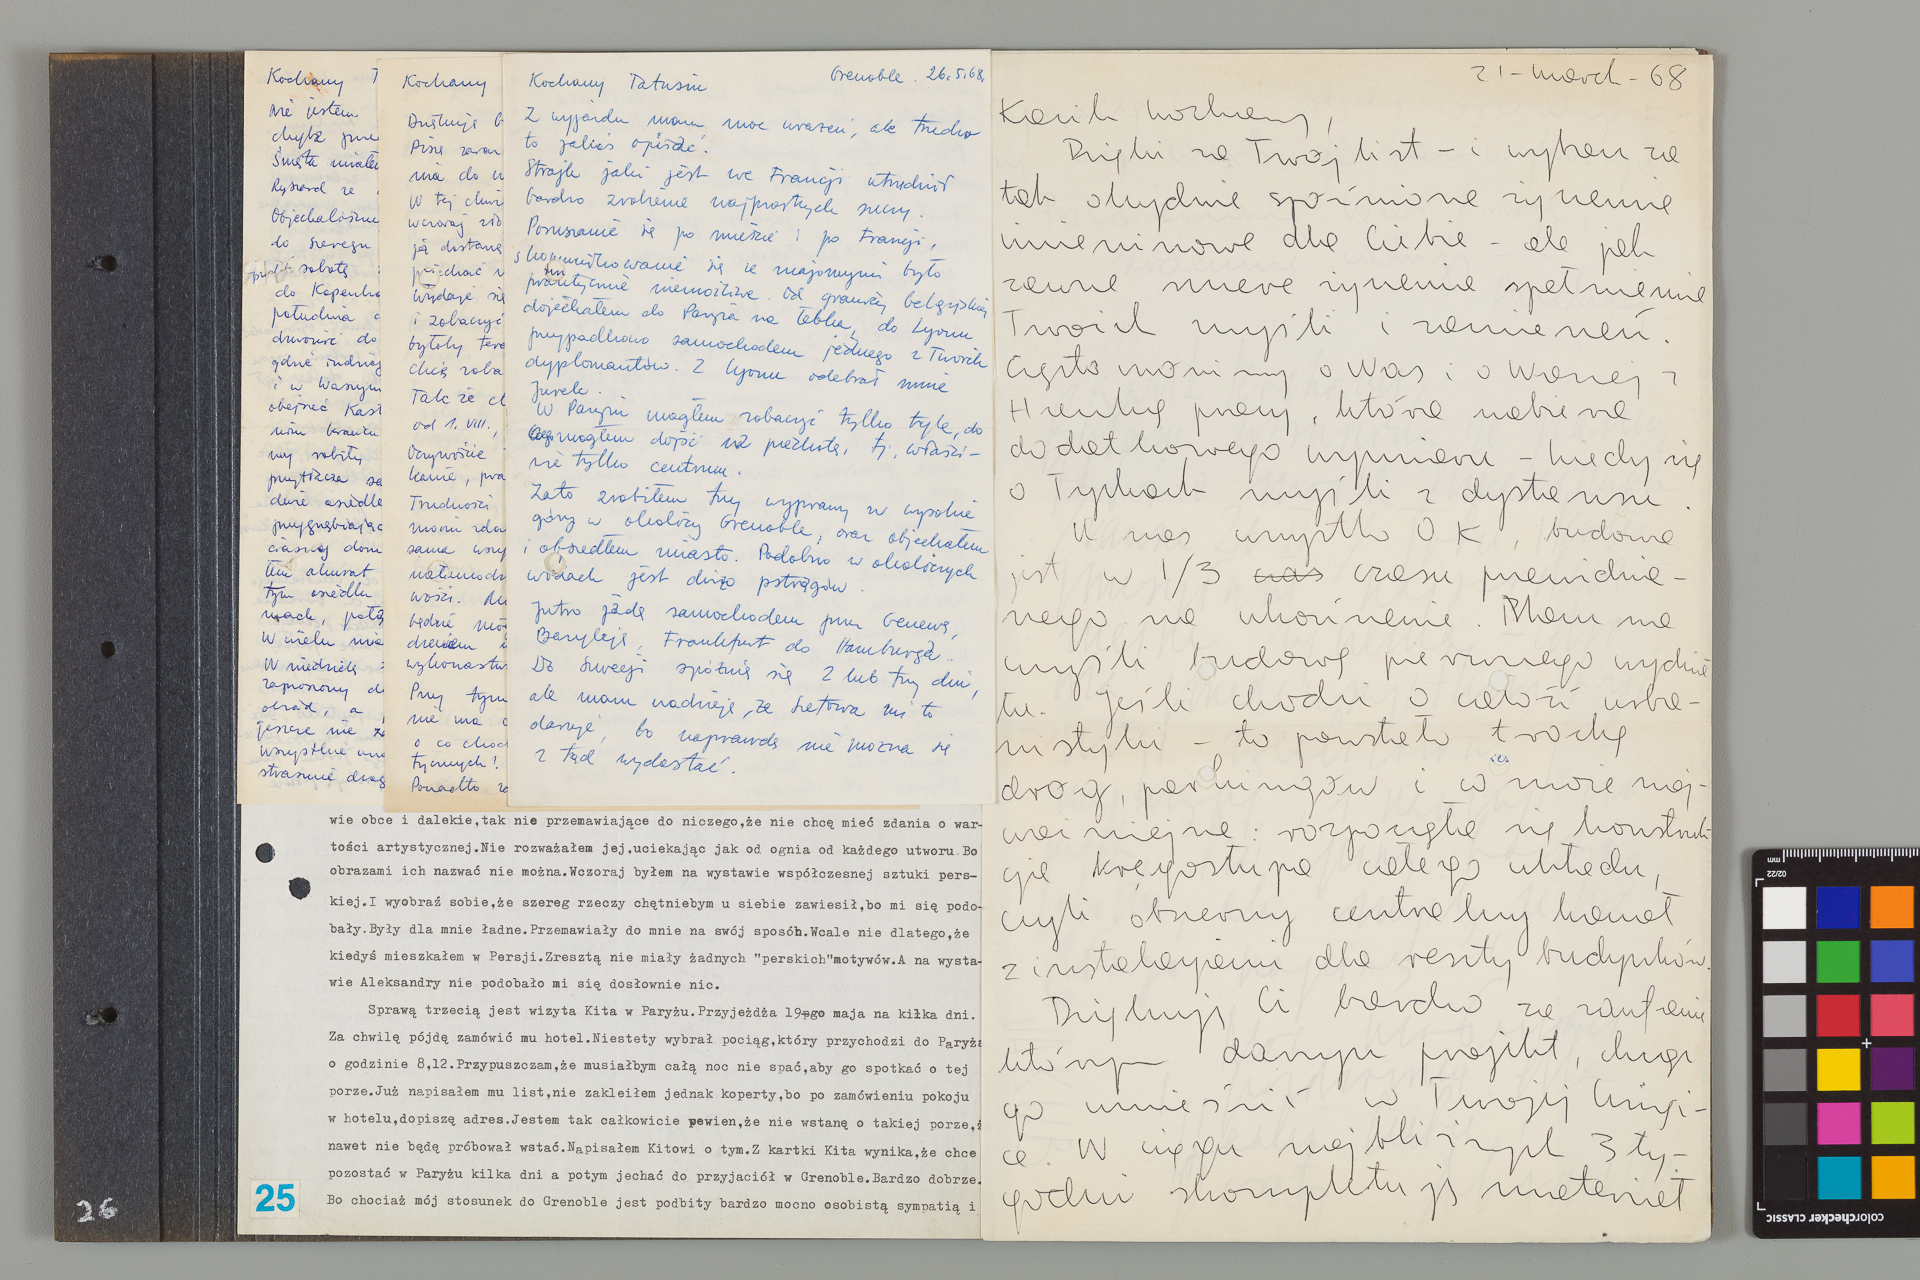 Kochany T
nie jestem
chyba
Święta miałem
Ryszard ze
Objechaliśmy
do szeregu
sobotę
do Kopenha
południa
dzwonić do
gdzie
i w Waszym
obejrzeć
nim
my robiły
duże osiedle
ciasnej dom
tym osiedlu
W wielu
W niedzielę
zaproszony
obiad, a
jeszcze nie
strasznie drog
Kochany
Dziękuję
Piszę zaraz
nia do
W tej chwi
ją dostanę
przyjechać
Wydaje się
i zobaczyć
byłoby
chcę
Tak że
od 1. VIII.,
Oczywiście
Trudności
sama
będzie
Przy tym
nie ma
o co chod
tycznych!
Ponadto
Kochany Tatusiu
Grenoble. 26.5.68.
Z wyjazdu mam moc wrażeń, ale trudno
to jakoś opisać.
Strajk jaki jest we Francji utrudnił
bardzo zrobienie najprostszych rzeczy.
Poruszanie się po mieście i po Francji,
skomunikowanie się ze znajomymi było
praktycznie niemożliwe. Od granicy belgijskiej
dojechałem do Paryża na łebka, do Lyonu
przypadkowo samochodem jednego z Twoich
dyplomantów. Z Lyonu odebrał mnie
Jurek.
W Paryżu mogłem zobaczyć tylko tyle, do
czego mogłem dojść na piechotę, tj. właści-
nie tylko centrum.
Zato zrobiłem trzy wyprawy w wysokie
góry w okolicy Grenoble, oraz objechałem
i obszedłem miasto. Podobno w okolicznych
wodach jest dużo pstrągów.
Jutro jadę samochodem przez Genewę,
Bazyleję, Frankfurt do Hamburga.
Do Szwecji spóźnię się 2 lub trzy dni,
ale mam nadzieję, że mi to
daruje, bo naprawdę nie można się
z tąd wydostać.
wie obce i dalekie,tak nie przemawiające do niczego,że nie chcę mieć zdania o war-
tości artystycznej.Nie rozważałem jej.uciekając jak od ognia od każdego utworu.Bo
obrazami ich nazwać nie można.Wczoraj byłem na wystawie współczesnej sztuki pers-
kiej.I wyobraź sobie,że szereg rzeczy chętniebym u siebie zawiesił,bo mi się podo-
bały.Były dla mnie ładne.Przemawiały do mnie na swój sposób.Wcale nie dlatego,że
kiedyś mieszkałem w Persji.Zresztą nie miały żadnych "perskich"motywów.A na wysta-
wie Aleksandry nie podobało mi się dosłownie nic.
Sprawą trzecią jest wizyta Kita w Paryżu.Przyjeżdża 19-go maja na kilka dni.
Za chwilę pójdę zamówić mu hotel.Niestety wybrał pociąg,który przychodzi do Paryża
o godzinie 8,12.Przypuszczam,że musiałbym całą noc nie spać,aby go spotkać o tej
porze.Już napisałem mu list,nie zakleiłem jednak koperty,bo po zamówieniu pokoju
w hotelu,dopiszę adres.Jestem tak całkowicie pewien,że nie wstanę o takiej porze,ż
nawet nie będę próbował wstać.Napisałem Kitowi o tym.Z kartki Kita wynika,że chce
pozostać w Paryżu kilka dni a potym jechać do przyjaciół w Grenoble.Bardzo dobrze.
Bo chociaż mój stosunek do Grenoble jest podbity bardzo mocno osobistą sympatią i
25
26
21 - march - 68
Kazik kochany,
Dzięki za Twój list - i wybacz za
tak ohydnie spóźnione życzenie
imieninowe dla Ciebie - ale jak
zawsze życzenie spełnienia
Twoich myśli i zamierzeń.
Często mówimy o Was i o Waszej z
Hanką pracy, która nabiera
dodatkowego wymiaru - kiedy się
o Tychach myśli z dystansu.
U nas wszystko OK, budowa
jest w 1/3 czas czasu przewidzia-
nego na ukończenie. Mam na
myśli budowę pierwszego wydzia-
łu. Jeśli chodzi o całość urba-
nistyki - to powstało trochę
dróg, parkingów i co może naj-
ważniejsze: rozpoczęta się konstruk-
cja kręgosłupa całego układu,
czyli obszerny centralny kanał
z instalacjami dla reszty budynków.
Dziękuję Ci bardzo za zaufanie
którym darzysz projekt, chcąc
go umieścić w Twojej książ-
ce. W ciągu najbliższych 3 ty-
godni skompletuję materiał
mm
02/22
colorchecker CLASSIC